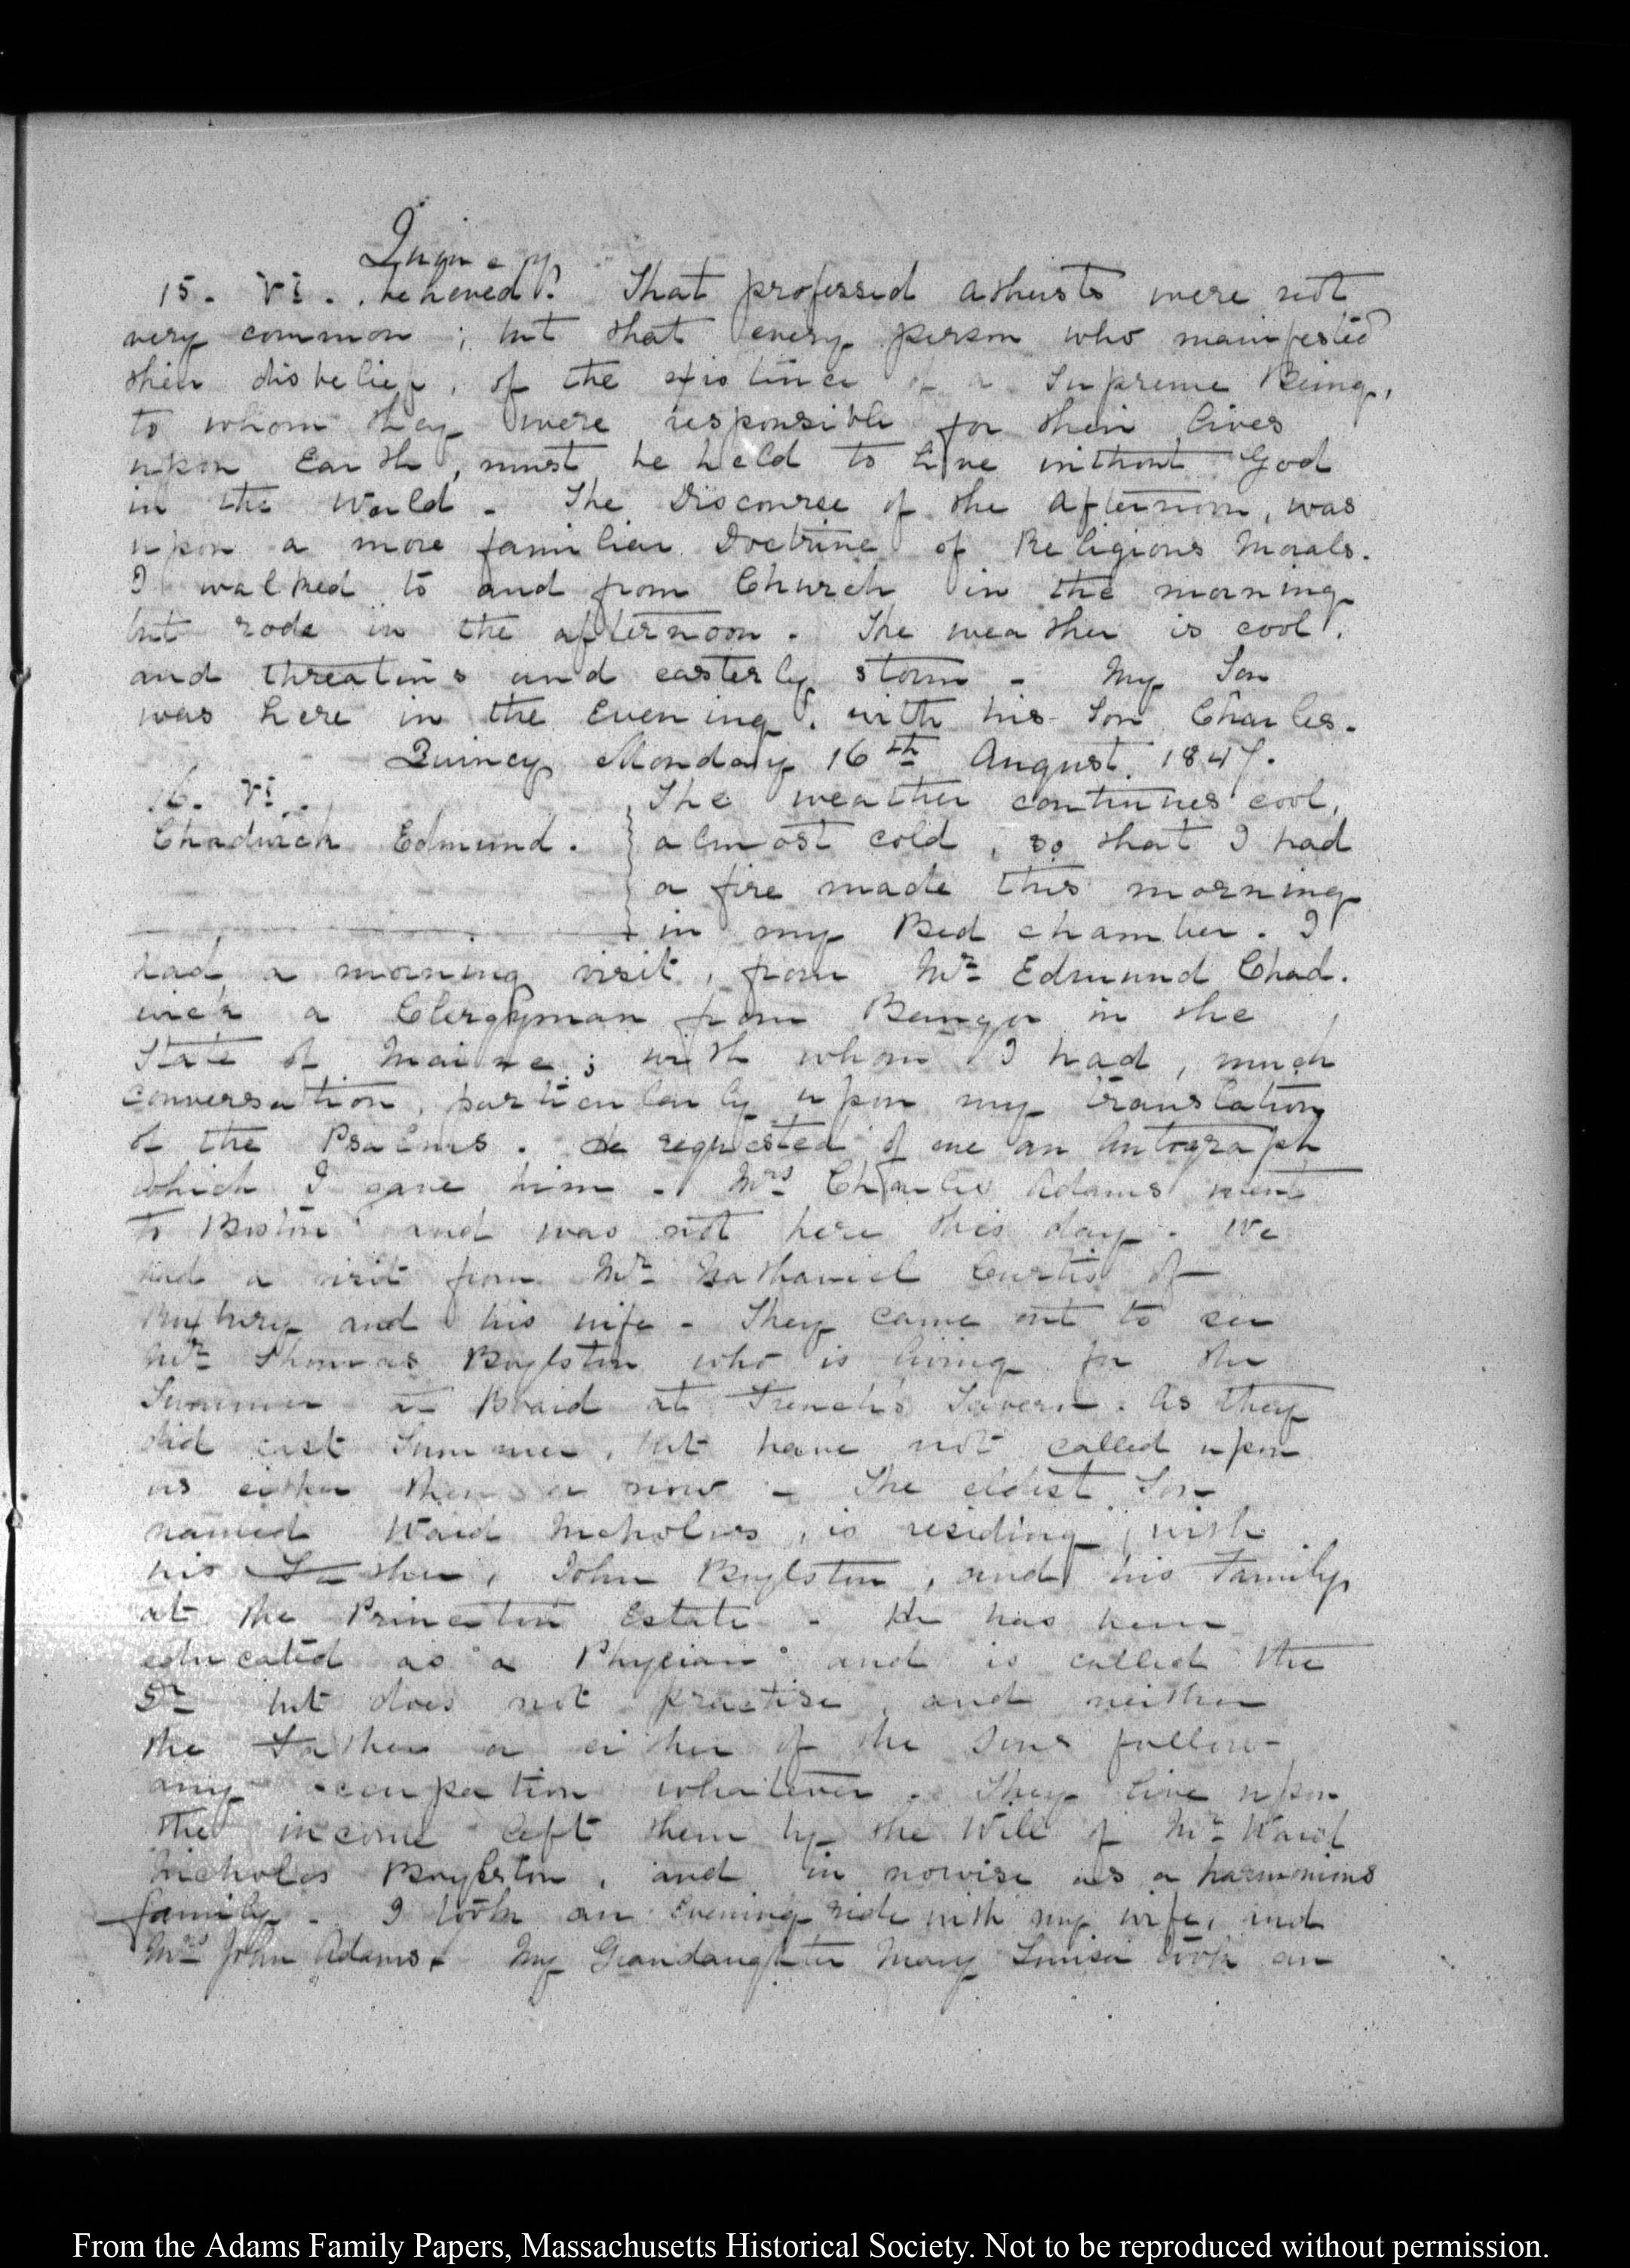 Quincy
15. VI. believed. That professed atheists were not
very common; but that every person who manifested
their disbelief, of the existence of a Supreme Being,
to whom they were responsible for their lives
upon Earth, must be held to live without God
in the World - The Discourse of the afternoon, was
upon a more familiar Doctrine of Religious Morals.
I walked to and from Church in the morning
but rode in the afternoon. The weather is cool,
and threatens and easterly storm - My Son
was here in the Evening, with his Son Charles.
Quincy Monday 16th August. 1847.
16. VI.
Chadwick Edmund.
The weather continues cool,
almost cold, so that I had
a fire made this morning
in my Bed chamber. I
had a morning visit, from Mr Edmund Chad.
wick a Clergyman from Bangor in the
State of Maine; with whom I had, much
conversation, particularly upon my translation
of the Psalms. He requested of me an Autograph
which I gave him - Mrs Charles Adams went
to Boston and was not here this day. We
had a visit from Mr Nathaniel Curtis of
Roxbury and his wife - They came out to see
Mr Thomas Boylston who is living for the
Summer at Board at French's Tavern. As they
did last Summer, but have not called upon
us either then or now - The eldest Son
named Ward Nicholas, is residing with
his Father, John Boylston, and his Family,
at the Princeton Estate - He has been
educated as a Phycian and is called the
Dr but does not practise, and neither
the Father or either of the Sons follow
any occupation whatever - They live upon
the income left them by the Will of Mr Ward
Nicholas Boylston, and in nowise as a harmonious
family - I took an Evening ride with my wife, and
Mrs John Adams. My Grandaughter Mary Louisa took an
From the Adams Family Papers, Massachusetts Historical Society. Not to be reproduced without permission.